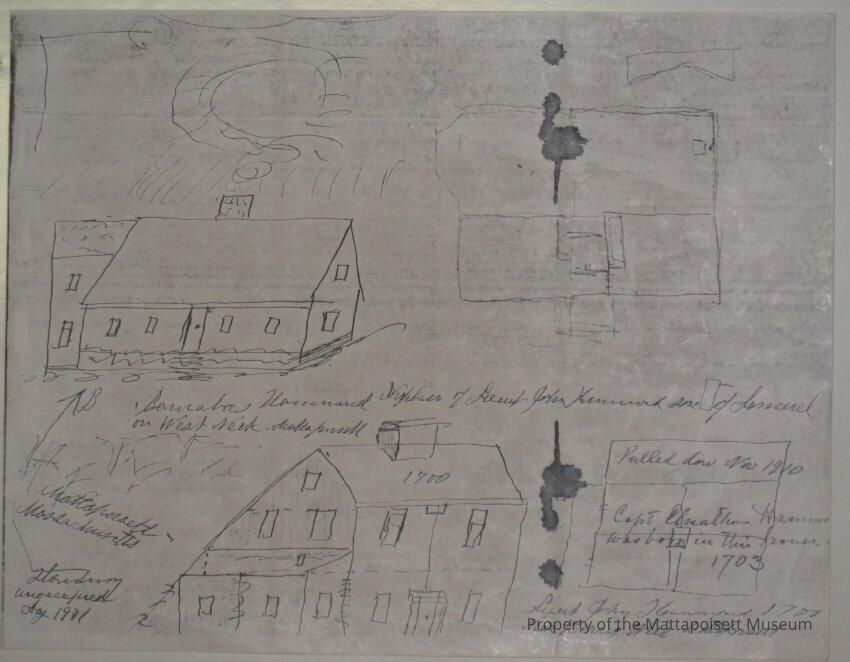 B
Barnabas Hammond Nephew of Lieut John Hammond son of Samuel
on West Neck. Mattapoisett
1700
Pulled dow Nov 1910
Capt Elnathan Hammon
was born in this house
1703
Mattapoisett
Massachusetts
Standing
unoccupied
Aug 1911
Lieut John Hammond 1700
Property of the Mattapoisett Museum